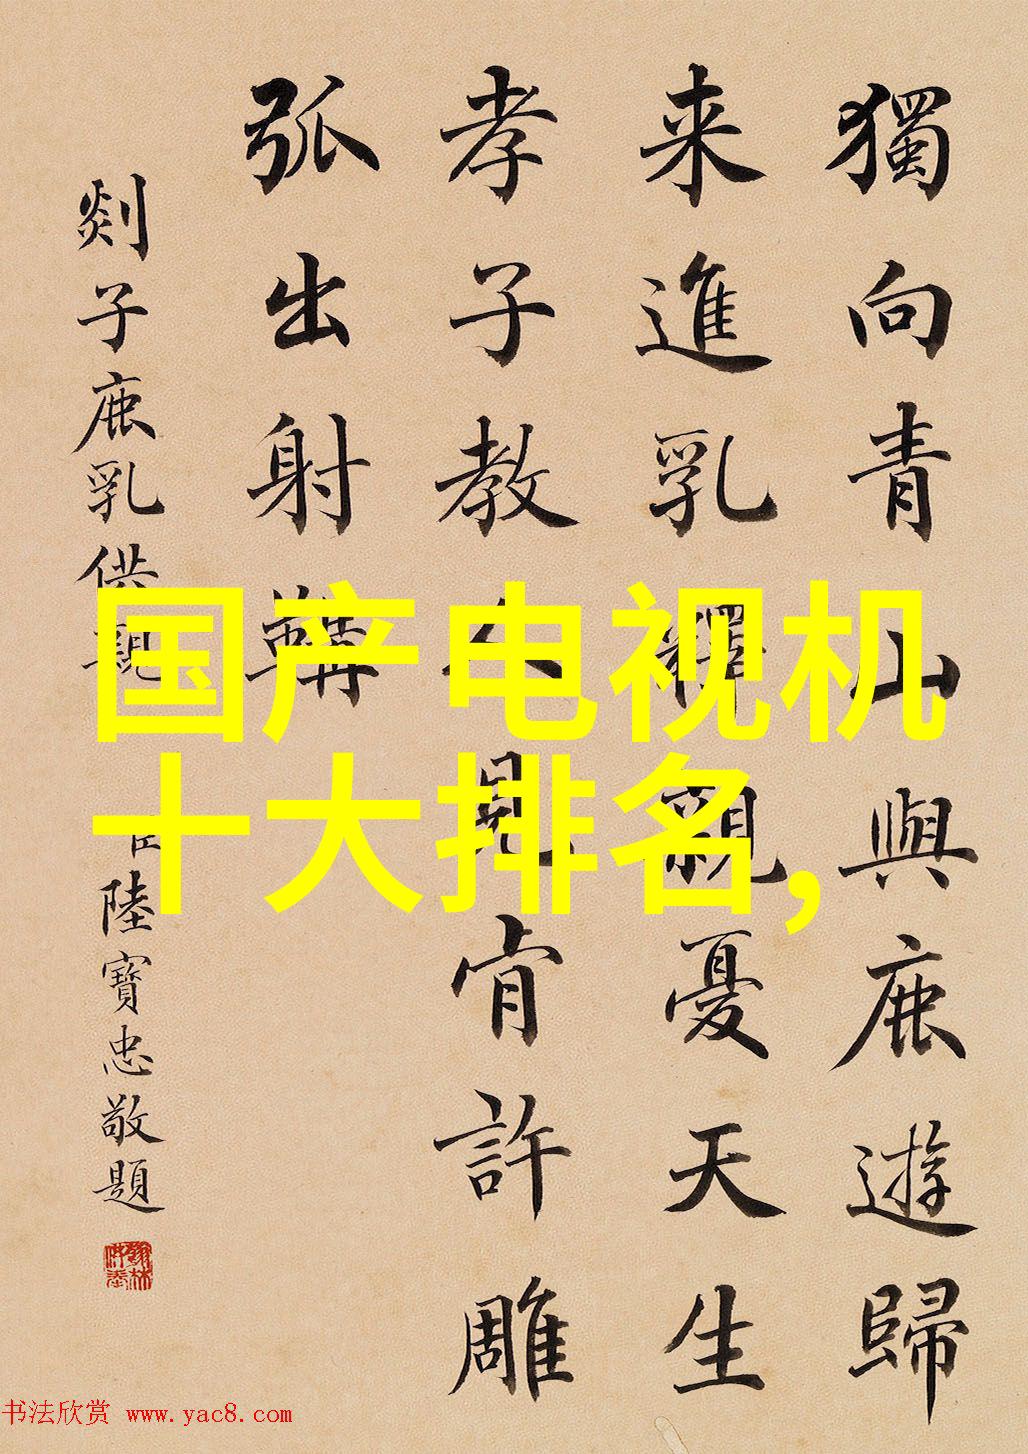 獨向青山與鹿遊歸
来進乳釋親憂天生
孝子教人見肯許雕
弧出射鞲
剡子鹿乳供親
臣陸寶忠敬題
国产电视机
十大排名,
书法欣赏 www.yac8.com